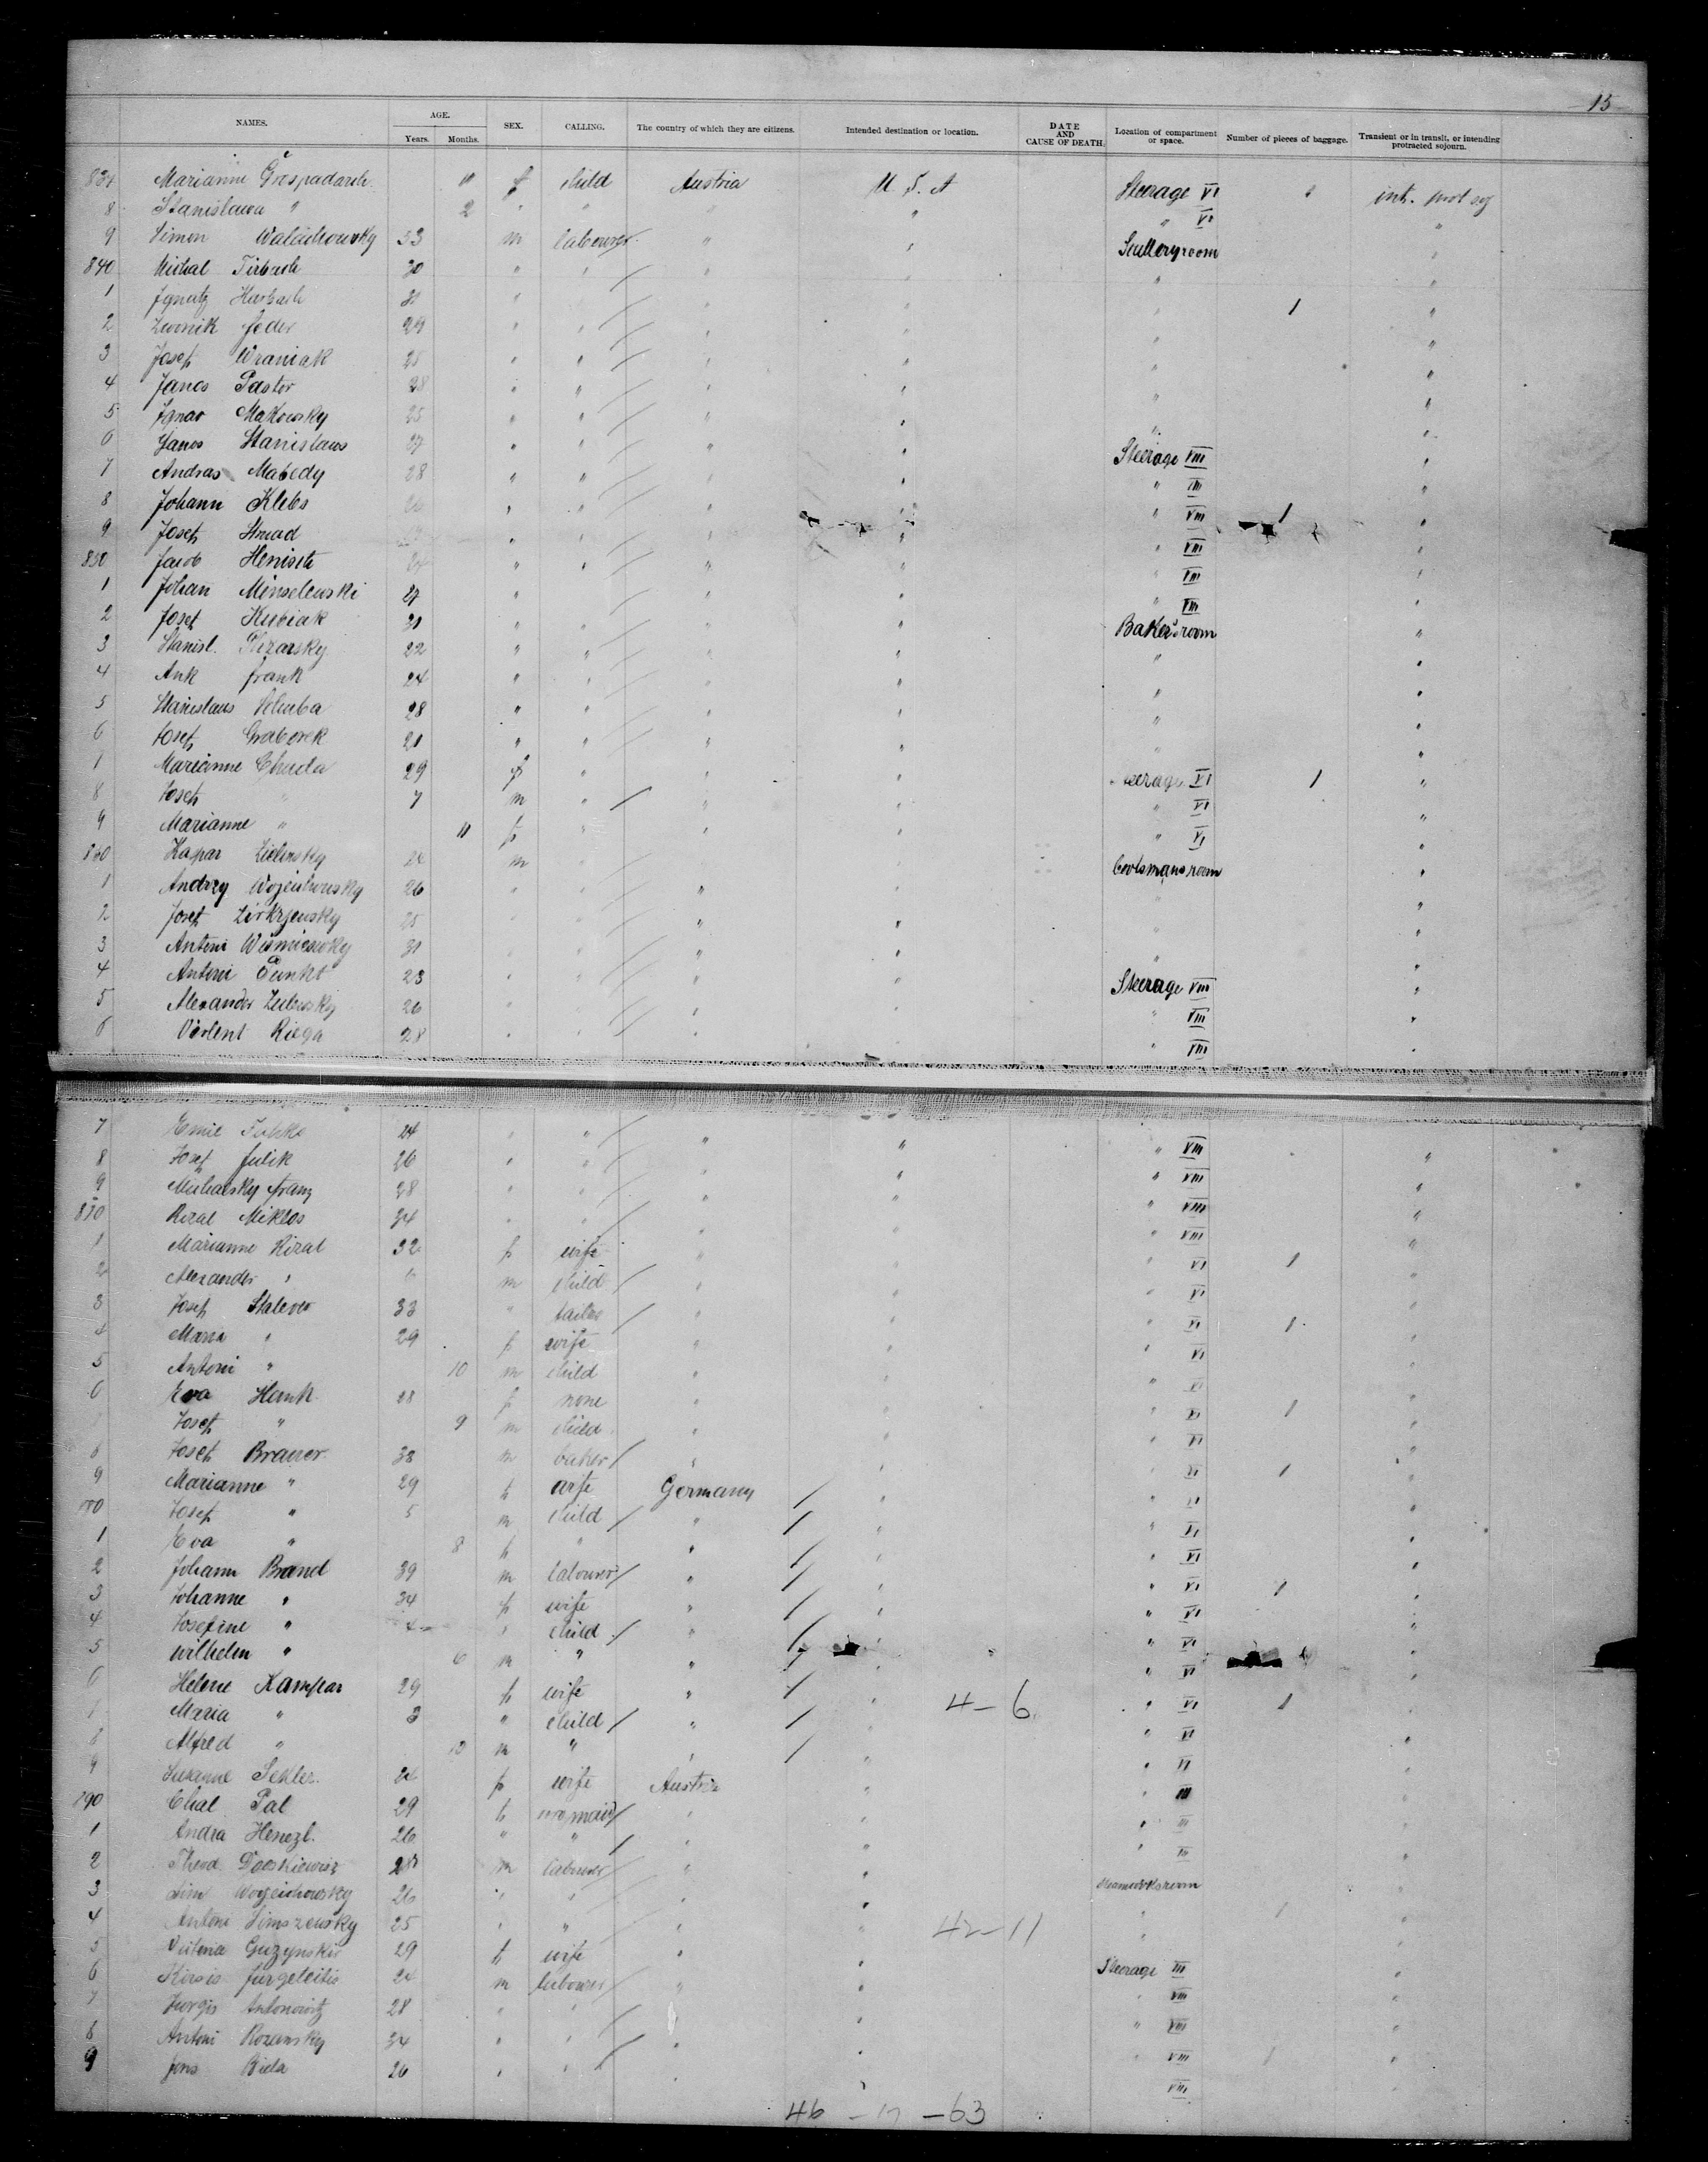 15
NAMES. AGE. Years. Months. SEX. CALLING. The country of which they are citizens. Intended destination or location. DATE AND CAUSE OF DEATH. Location of compartment or space. Number of pieces of baggage. Transient or in transit, or intending protracted sojourn.
Marianne Gospadarch 11 f child Austria U. S. A Steerage VI 1 int. prot soj
8 Stanislawa " 2 " " " " " VI "
9 Simon 33 m labourer " " Sculleryroom "
840 Michal Tirbach 30 " " " " " "
1 Ignatz Harbach 31 " " " " " 1 "
2 Zwornik feder 29 " " " " " "
3 Josef Wraniak 25 " " " " " "
4 Janos Pastor 28 " " " " " "
5 Ignac Makowsky 25 " " " " " "
6 Janos Stanislaus 27 " " " " Steerage VIII "
7 Andras Mabedy 28 " " " " " VIII "
8 Johann Klebs 26 " " " " " VIII 1 "
9 Josef " " " " " VIII "
850 Jacob Henisch 24 " " " " " VIII "
1 Johan Minselewski 27 " " " " " VIII "
2 Josef Kubiak 31 " " " " Bakersroom "
3 Stanisl. 22 " " " " " "
4 Ank frank 24 " " " " " "
5 Stanislaus 28 " " " " " "
6 Josef Graborek 21 " " " " " "
Marianne Chuda 29 f " " " Steerage VI 1 "
8 Josef " 7 m " " " " VI "
9 Marianne " 11 f " " " " VI "
860 Kapar Zielinsky 24 m " " " Bootsmansroom "
1 Andrzy Wojcichowsky 26 " " " " " "
2 Josef 25 " " " " " "
3 Antoni Wismiewsky 31 " " " " " "
4 Antoni Punkt 23 " " " " Steerage VIII "
5 Alexander 26 " " " " " VIII "
6 Riega 28 " " " " " VIII "
7 Emil 24 " " " " " VIII "
8 Josef Julik 26 " " " " " VIII "
9 Michalsky franz 28 " " " " " VIII "
870 Rizal Miklos 34 " " " " " VIII "
1 Marianne Rizal 32 f wife " " " VI 1 "
2 Alexander " 6 m child " " " VI "
3 Josef 33 " tailor " " " VI 1 "
4 Maria " 29 f wife " " " VI "
5 Antoni " 10 m child " " " VI "
6 Eva Hank 28 f none " " " VI 1 "
Josef " 9 m child " " " VI "
8 Josef Brauer 38 m baker " " " VI 1 "
9 Marianne " 29 f wife Germany " " VI "
880 Josef " 5 m child " " " VI "
1 Eva " 8 f " " " " VI "
2 Johann Brand 39 m labourer " " " VI 1 "
3 Johanne " 34 f wife " " " VI "
4 Josefine " 4 " child " " " VI "
5 Wilhelm " 6 m " " " " VI "
6 Helene Kampar 29 f wife " " 4-6 " VI 1 "
Maria " 3 " child " " " VI "
8 Alfred " 10 m " " " " VI "
9 Susanne Sekler 24 f wife Austria " " III "
890 Chal Pal 29 f " " " III "
1 Andra Henezl. 26 " " " " " III "
2 Theod. 28 m labourer " " Steamcooksroom "
3 Sim Wojcichowsky 26 " " " " " 1 "
4 Antoni Simszewsky 25 " " " " 42-11 " "
5 Victoria Guzynski 29 f wife " " Steerage III "
6 Kirsis Jurgeleitis 24 m labourer " " " VIII "
7 Jurgis Antonowitz 28 " " " " " VIII "
8 Antoni Rozansky 34 " " " " " VIII 1 "
9 Jons Bida 26 " " " " VIII "
46 - 17 - 63